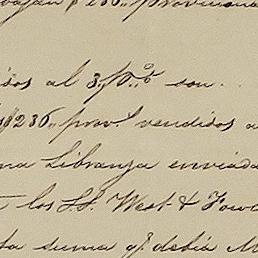 bajan $236,, provisiona
idos al 3,,p.% son..
$236,, prov.l vendidos a
na Libranza enviada
los SS. West & Fowl
ta suma q.e debia M